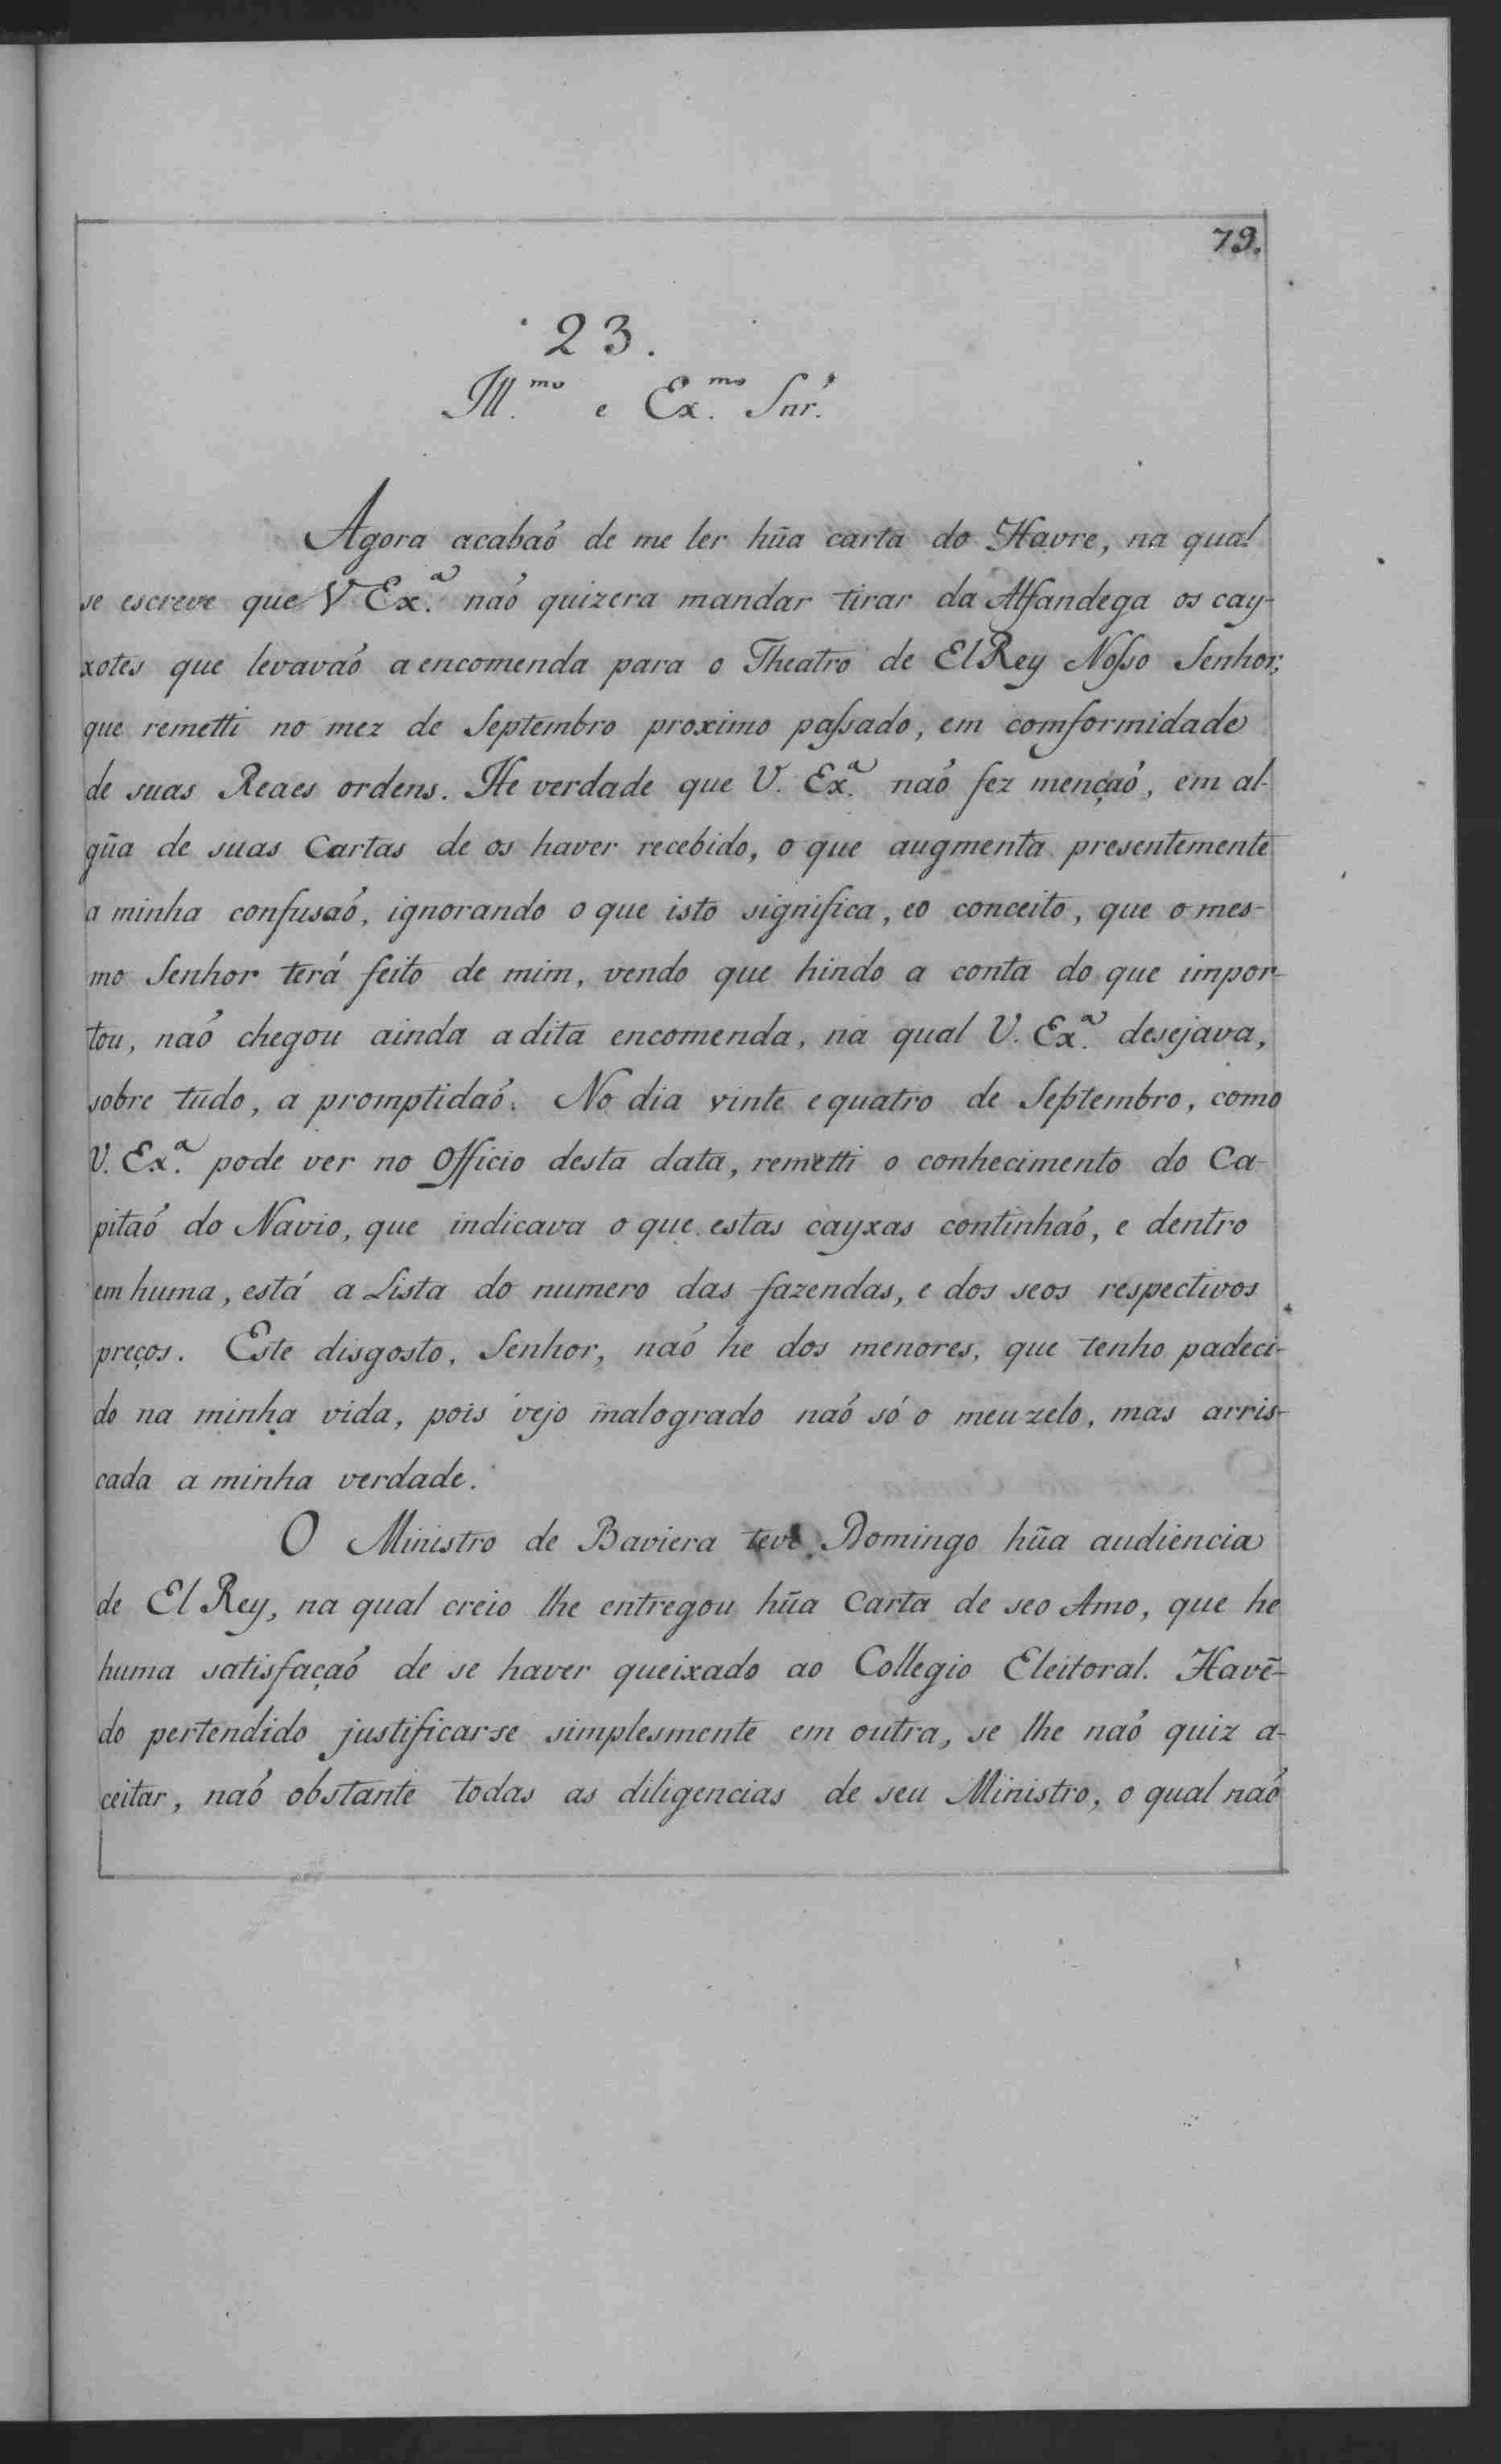 79.
23.
Ill.mo e Ex.mo Snr.
Agora acabaõ de me ler hũa carta do Havre, na qual
se escreve que V Ex.a naõ quizera mandar tirar da Alfandega os cay-
xotes que levavaõ a encomenda para o Theatro de El Rey Nosso Senhor;
que remetti no mez de Septembro proximo passado, em comformidade
de suas Reaes ordens. He verdade que V. Ex.a naõ fez mençaõ, em al-
gũa de suas Cartas de os haver recebido, o que augmenta presentemente
a minha confusaõ, ignorando o que isto significa, eo conceito, que o mes-
mo Senhor terá feito de mim, vendo que hindo a conta do que impor-
tou, naõ chegou ainda a dita encomenda, na qual V. Ex.a desejava,
sobre tudo, a promptidaõ. No dia vinte e quatro de Septembro, como
V. Ex.a pode ver no Officio desta data, remetti o conhecimento do Ca-
pitaõ do Navio, que indicava o que estas cayxas continhaõ, e dentro
em huma, está a Lista do numero das fazendas, e dos seos respectivos
preços. Este disgosto, Senhor, naõ he dos menores, que tenho padeci-
do na minha vida, pois vejo malogrado naõ só o meu zelo, mas arris-
cada a minha verdade.
O Ministro de Baviera teve Domingo hũa audiencia
de El Rey, na qual creio lhe entregou hũa Carta de seo Amo, que he
huma satisfaçaõ de se haver queixado ao Collegio Eleitoral. Havẽ-
do pertendido justificar-se simplesmente em outra, se lhe naõ quiz a-
ceitar, naõ obstante todas as diligencias de seu Ministro, o qual naõ